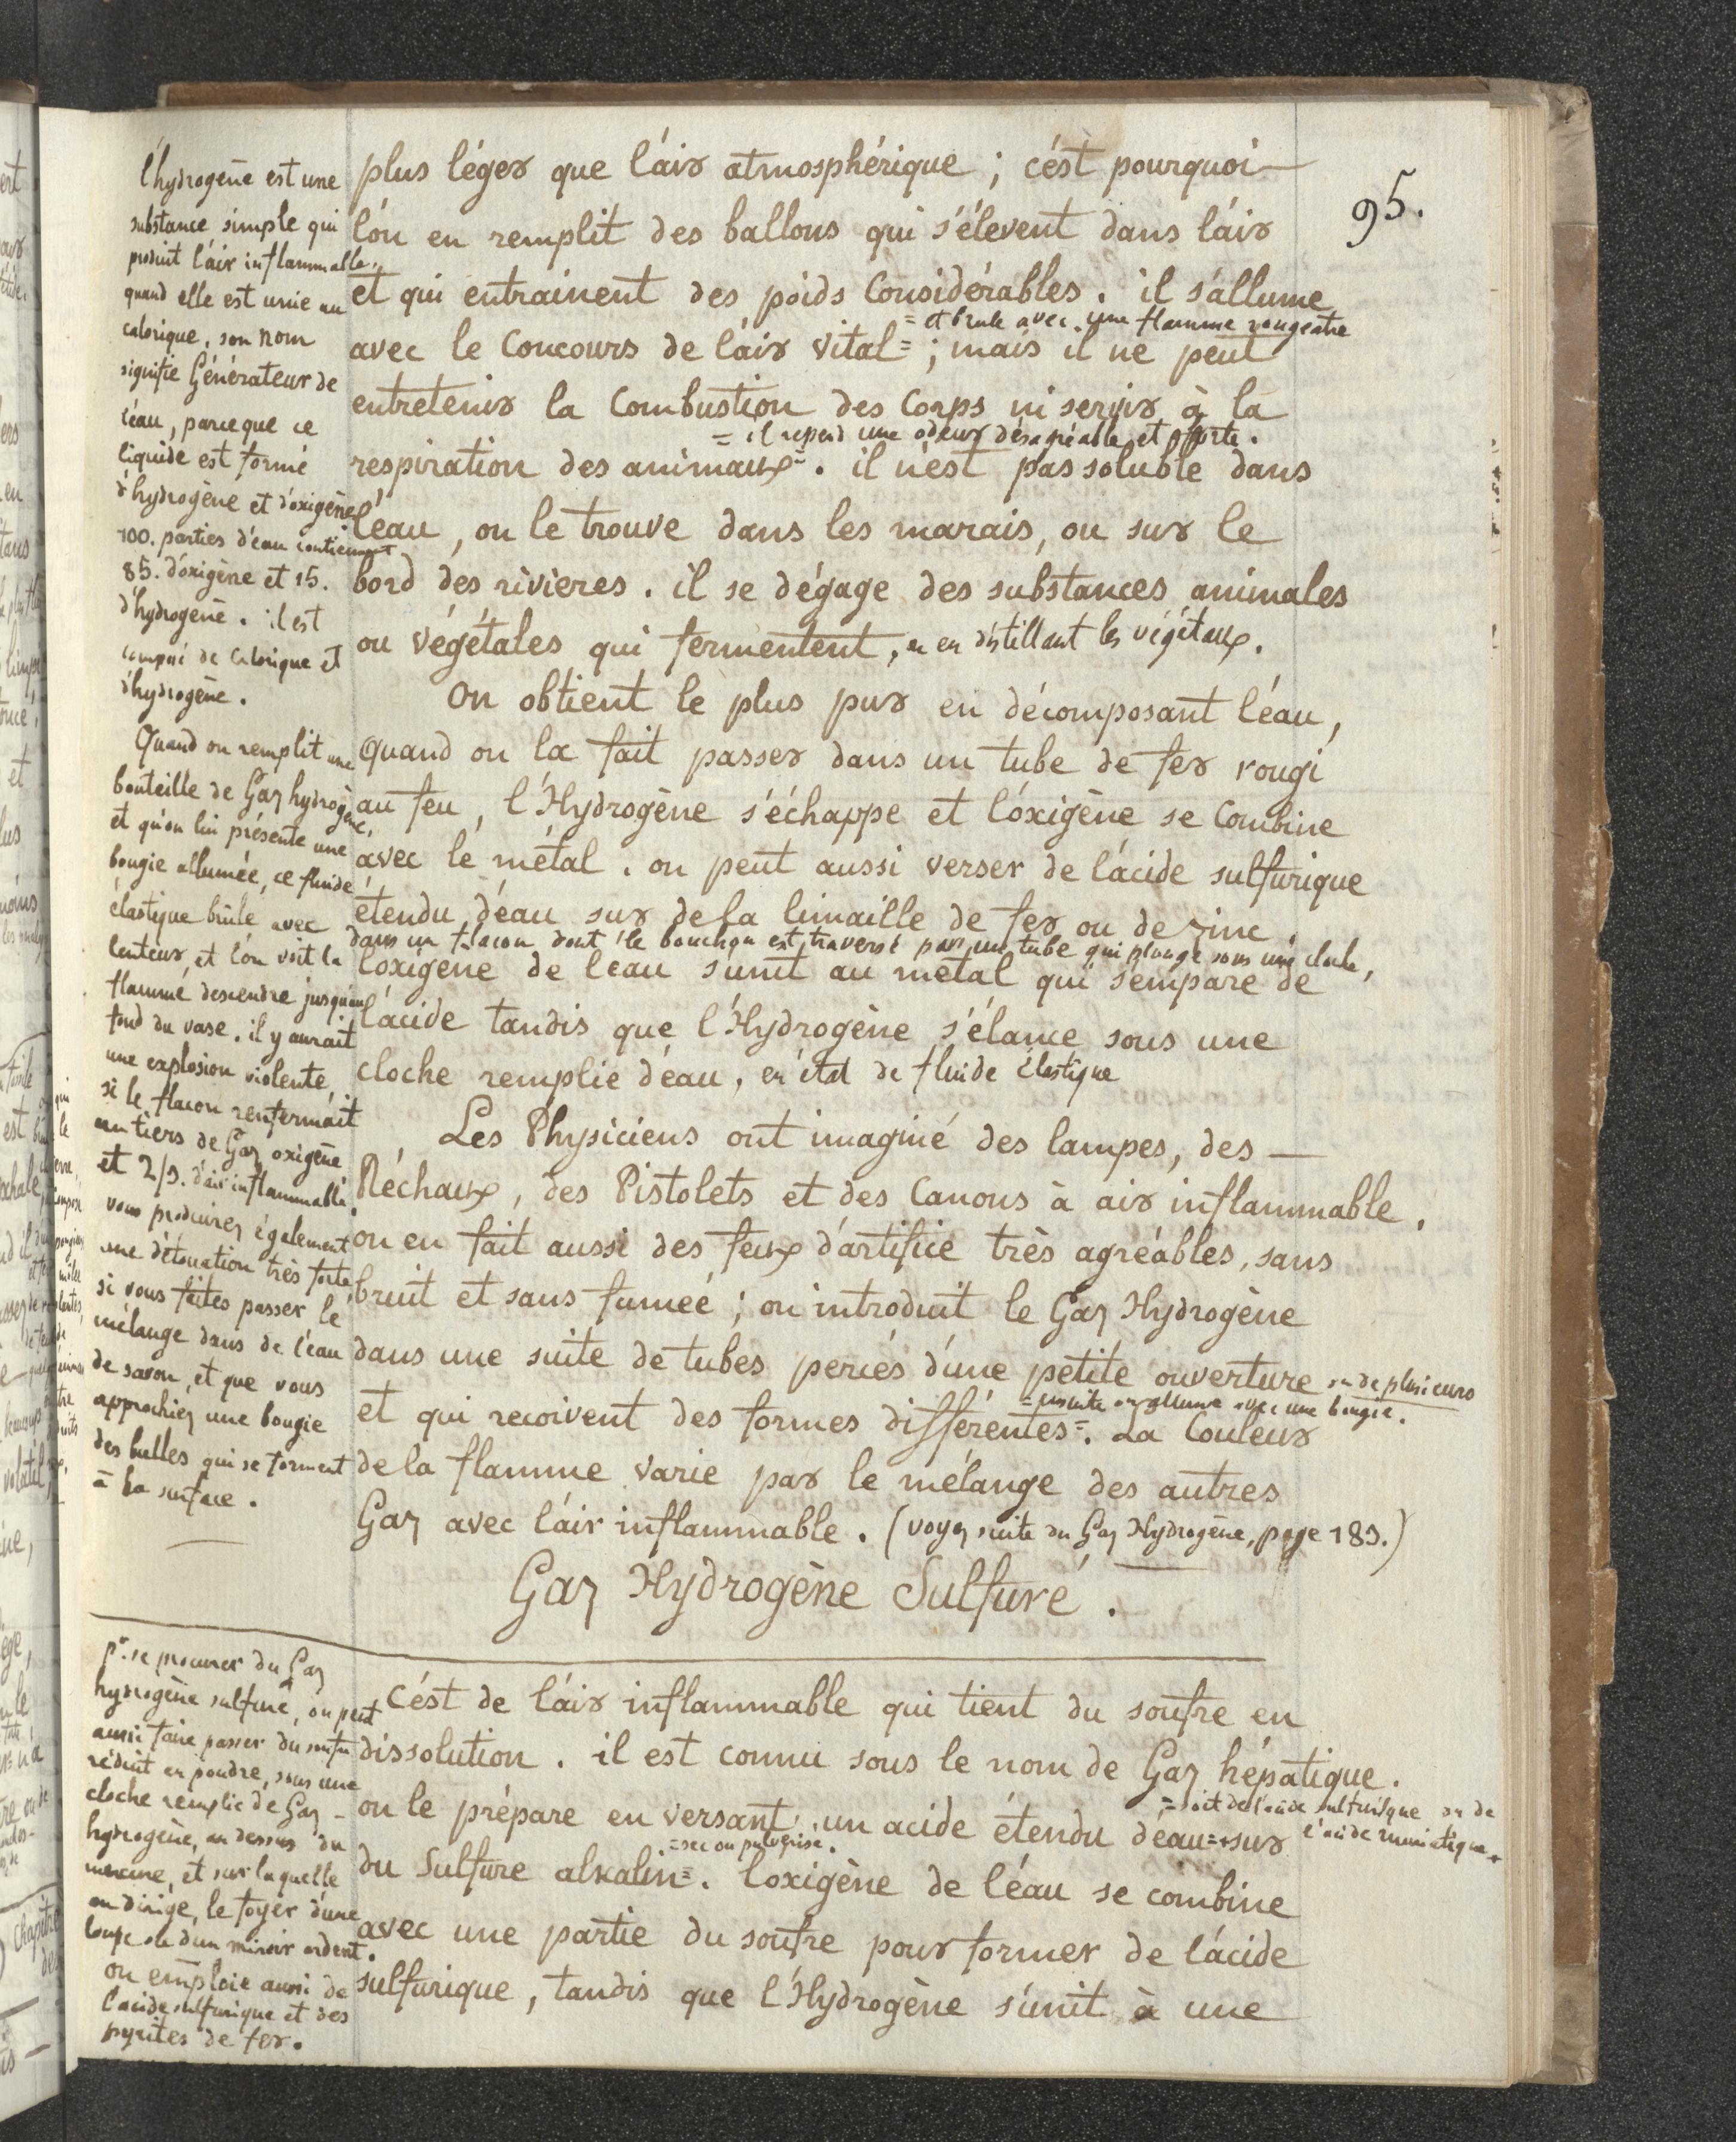 95.
plus léger que l'air atmosphérique ; c'est pourquoi
l'on en remplit des ballons qui s'élevent dans l'air
et qui entrainent des poids Considérables. il s'allume
= et brule avec une flamme rougeatre
avec le Concours de l'air vital = ; mais il ne peut
entretenir la Combustion des Corps ni servir à la
= il repend une odeur désagréable et forte.
respiration des animaux =. il n'est pas soluble dans
l'éau, on le trouve dans les marais, ou sur le
bord des rivieres. il se dégage des substances animales
ou végétales qui fermentent, ou en distillant les végétaux.
On obtient le plus pur en décomposant l'éau,
Quand on la fait passer dans un tube de fer rougi
au feu, l'Hydrogène s'échappe et l'oxigène se Combine
avec le métal. on peut aussi verser de l'acide sulfurique
étendu d'éau sur de la limaille de fer ou de zinc.
dans un flacon dont le bouchon est traversé par un tube qui plonge sous une cloche,
l'oxigène de l'eau s'unit au métal qui s'empare de
l'acide tandis que l'Hydrogène s'élance sous une
cloche remplie d'éau, en état de fluide élastique
Les Physiciens ont imaginé des lampes, des
Réchaux, des Pistolets et des Canons à air inflammable.
on en fait aussi des feux d'artifice très agréables, sans
bruit et sans fumée ; on introduit le Gaz Hydrogène
dans une suite de tubes percés d'une petite ouverture ou de plusieurs
= ensuite on allume avec une bougie.
et qui recoivent des formes différentes =. La Couleur
de la flamme varie par le mélange des autres
Gaz avec l'air inflammable. (voyez suite du Gaz Hydrogène, page 183.)
Gaz Hydrogène Sulfuré.
C'ést de l'air inflammable qui tient du soufre en
dissolution. il est connu sous le nom de Gaz hépatique.
= soit de l'acide sulfurique ou de
l'acide muriatique +
on le prépare en versant un acide étendu d'éau =+ sur
= sec ou pulverisé.
du Sulfure alkalin =. l'oxigène de l'éau se combine
avec une partie du soufre pour former de l'acide
sulfurique, tandis que l'Hydrogène s'unit à une
l'hydrogène est une
substance simple qui
produit l'air inflammable,
quand elle est unie au
calorique, son nom
signifie Générateur de
l'éau, parceque ce
liquide est formé
d'hydrogène et d'oxigène
100. parties d'éau contiennent
85. d'oxigène et 15.
d'hydrogene. il est
composé de Calorique et
d'hydrogène.
Quand on remplit une
bouteille de Gaz hydrogène,
et qu'on lui présente une
bougie allumée, ce fluide
élastique brûle avec
lenteur, et l'on voit la
flamme descendre jusqu'au
fond du vase. il y aurait
une explosion violente,
si le flacon renfermait
un tiers de Gaz oxigène
et 2/3. d'air inflammable.
vous produirez également
une détonation très forte,
si vous faites passer le
mélange dans de l'éau
de savon, et que vous
approchiez une bougie
des bulles qui se forment
à la surface.
pr. se procurer du Gaz
hydrogène sulfuré, on peut
aussi faire passer du soufre
réduit en poudre, sous une
cloche remplie de Gaz
hydrogène, au dessus du
mercure, et sur laquelle
on dirige, le foyer d'une
loupe ou d'un miroir ardent.
on emploie aussi de
l'acide sulfurique et des
pyrites de fer.